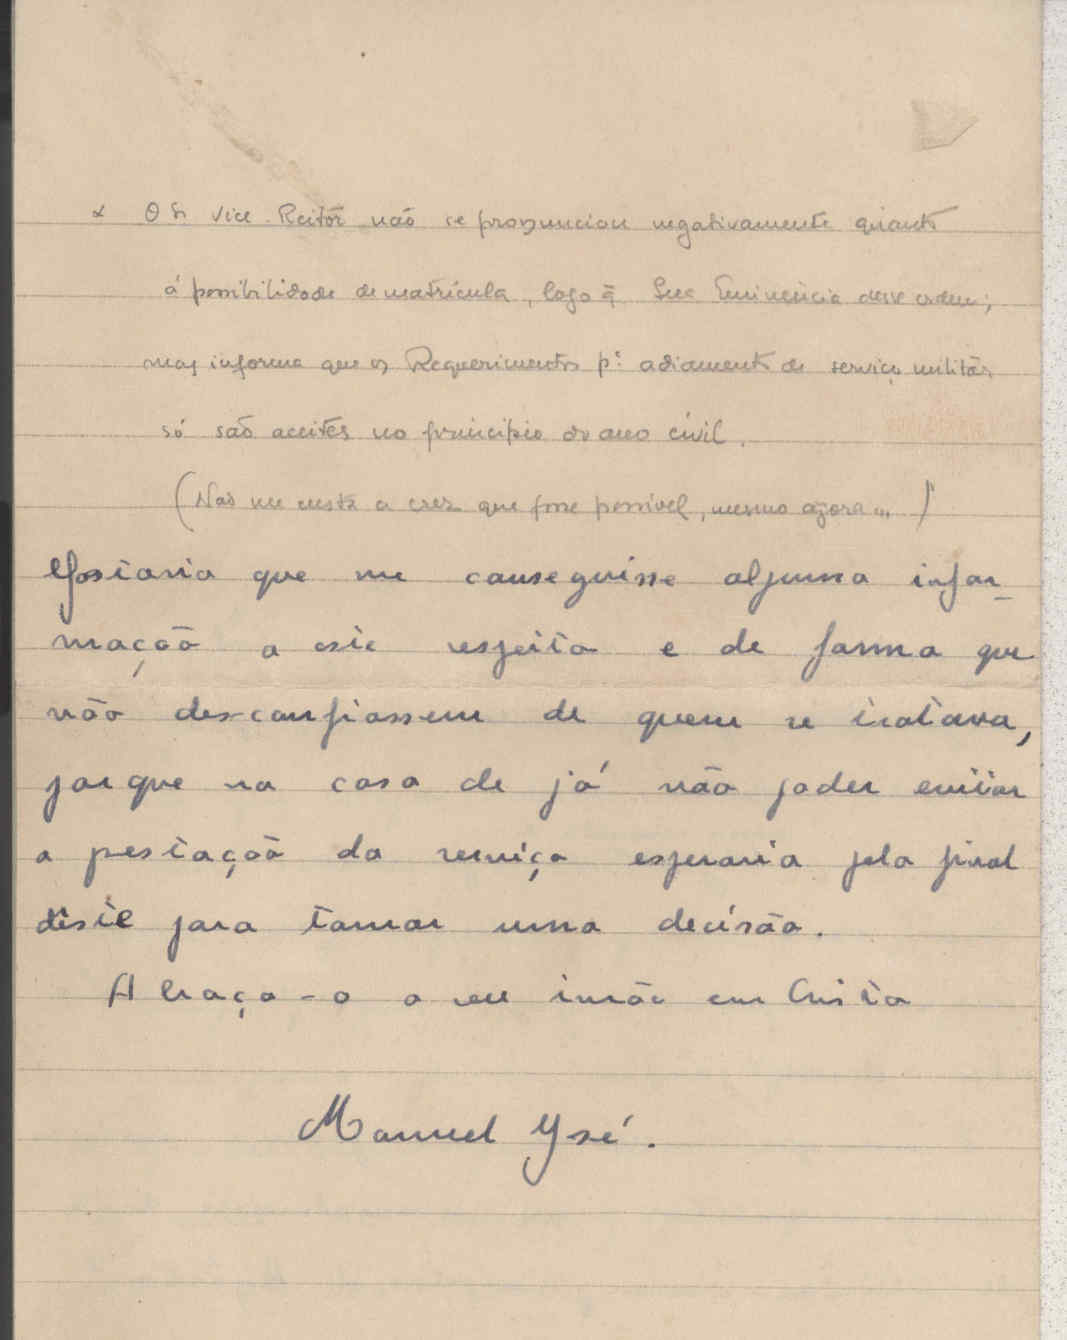 x O Sr Vice-Reitôr não se pronunciou negativamente quanto
á possibilidade de matrícula, logo q̃ Sua Eminência desse ordem;
mas informa que os Requerimentos pª adiamento de serviço militar
só são aceites no principio do ano civil.
(Não me custa a crer que fosse possível, mesmo agora... )
Gostaria que me conseguisse alguma infor-
mação a este respeito e de forma que
não desconfiassem de quem se tratava,
porque no caso de já não poder evitar
a pestação do serviço esperaria pelo final
dêste para tomar uma decisão.
Abraça-o o seu irmão em Cristo
Manuel José.